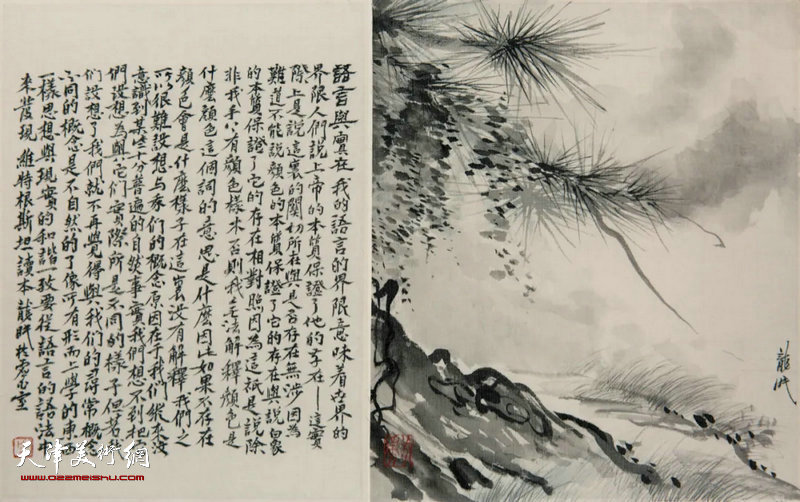 語言與實在 我的語言的界限意味着世界的
界限人們說上帝的本質保證了他的存在——這實
際上是說這裏的關切所在與是否存在無涉因為
難道不能說顏色的本質保證了它的存在與說白象
的本質保證了它的存在相對照因為這祇是說除
非我手八有顏色樣本否則我無法解釋顏色是
什麼顏色這個詞的意思是什麼因此如果不存在
顏色會是什麼樣子在這裏沒有解釋我們之
所以很難設想与我們的概念原因在于我們從來沒
意識到某些十分普遍的自然事實我們想不到把
們設想為與它們實際所是不同的樣子但若
們設想了我們就不再覺得與我們的尋常概念
不同的概念是不自然的了像所有形而上學的東
一樣思想與現實的和諧一致要從語言的語法中
來發現 維特根斯坦讀本 龍帆
龍帆
天津美術網
www.ozzmeishu.com